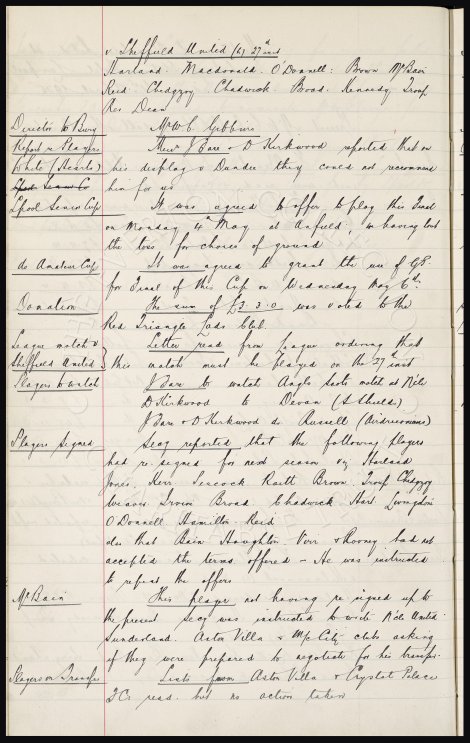 v Sheffield United (h) 27th inst
Harland. Macdonald. O'Donnell: Brown McBain
Reid Chedgzoy Chadwick. Broad. Kennedy Troup.
Res Dean
Director to Bury Mr W. C. Gibbins
Report re Players Messrs J Fare & D Kirkwood reported that on
White (Hearts) his display v Dundee they could not recommend
him for us
L'pool Senior Cup It was agreed to offer to play this Final
on Monday 4th May at Anfield, we having lost
the toss for choice of ground
do Amateur Cup It was agreed to grant the use of G.P.
for Final of this Cup on Wednesday May 6th.
Donation The sum of £3.3.0 was voted to the
Red Triangle Lads Club.
League match v Letter read from League ordering that
Sheffield United this match must be played on the 27th inst
Players to watch J Fare to watch Anglo Scots match at N'cle
D Kirkwood to Devan (S Shields)
J Fare & D Kirkwood do Russell (Airdrieonians)
Players Signed Secy reported that the following players
had re-signed for next season viz Harland
Jones. Kerr Peacock Raitt Brown. Troup Chedgzoy
Weaver Irvine Broad Chadwick Hart Livingstone
O'Donnell Hamilton. Reid
do that Bain Houghton Virr & Rooney had not
accepted the terms offered – He was instructed
to repeat the offers
McBain This player not having re-signed up to
the present Secy was instructed to write N'cle United
Sunderland. Aston Villa & M/c City clubs asking
if they were prepared to negotiate for his transfer.
Players on Transfer Lists from Aston Villa & Crystal Palace
F.Cs read but no action taken